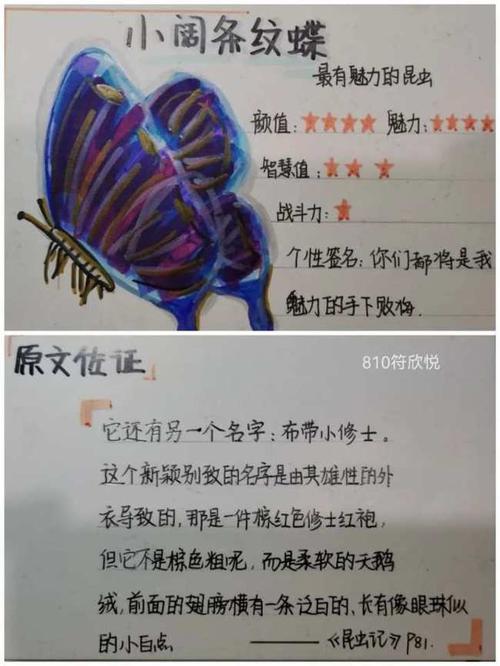 小阔条纹蝶
最有魅力的昆虫
颜值:★★★★ 魅力:★★★★
智慧值:★★ ★
战斗力:★
个性签名:你们都将是我
魅力的手下败悔.
原文佐证
810符欣悦
它还有另一个名字:布带小修士。
这个新颖别致的名字是由其雄性的外
衣导致的,那是一件棕红色修士红袍,
但它不是棕色粗呢,而是柔软的天鹅
绒,前面的翅膀横有一条泛白的,长有像眼珠似
的小白点 ——《昆虫记》P81.